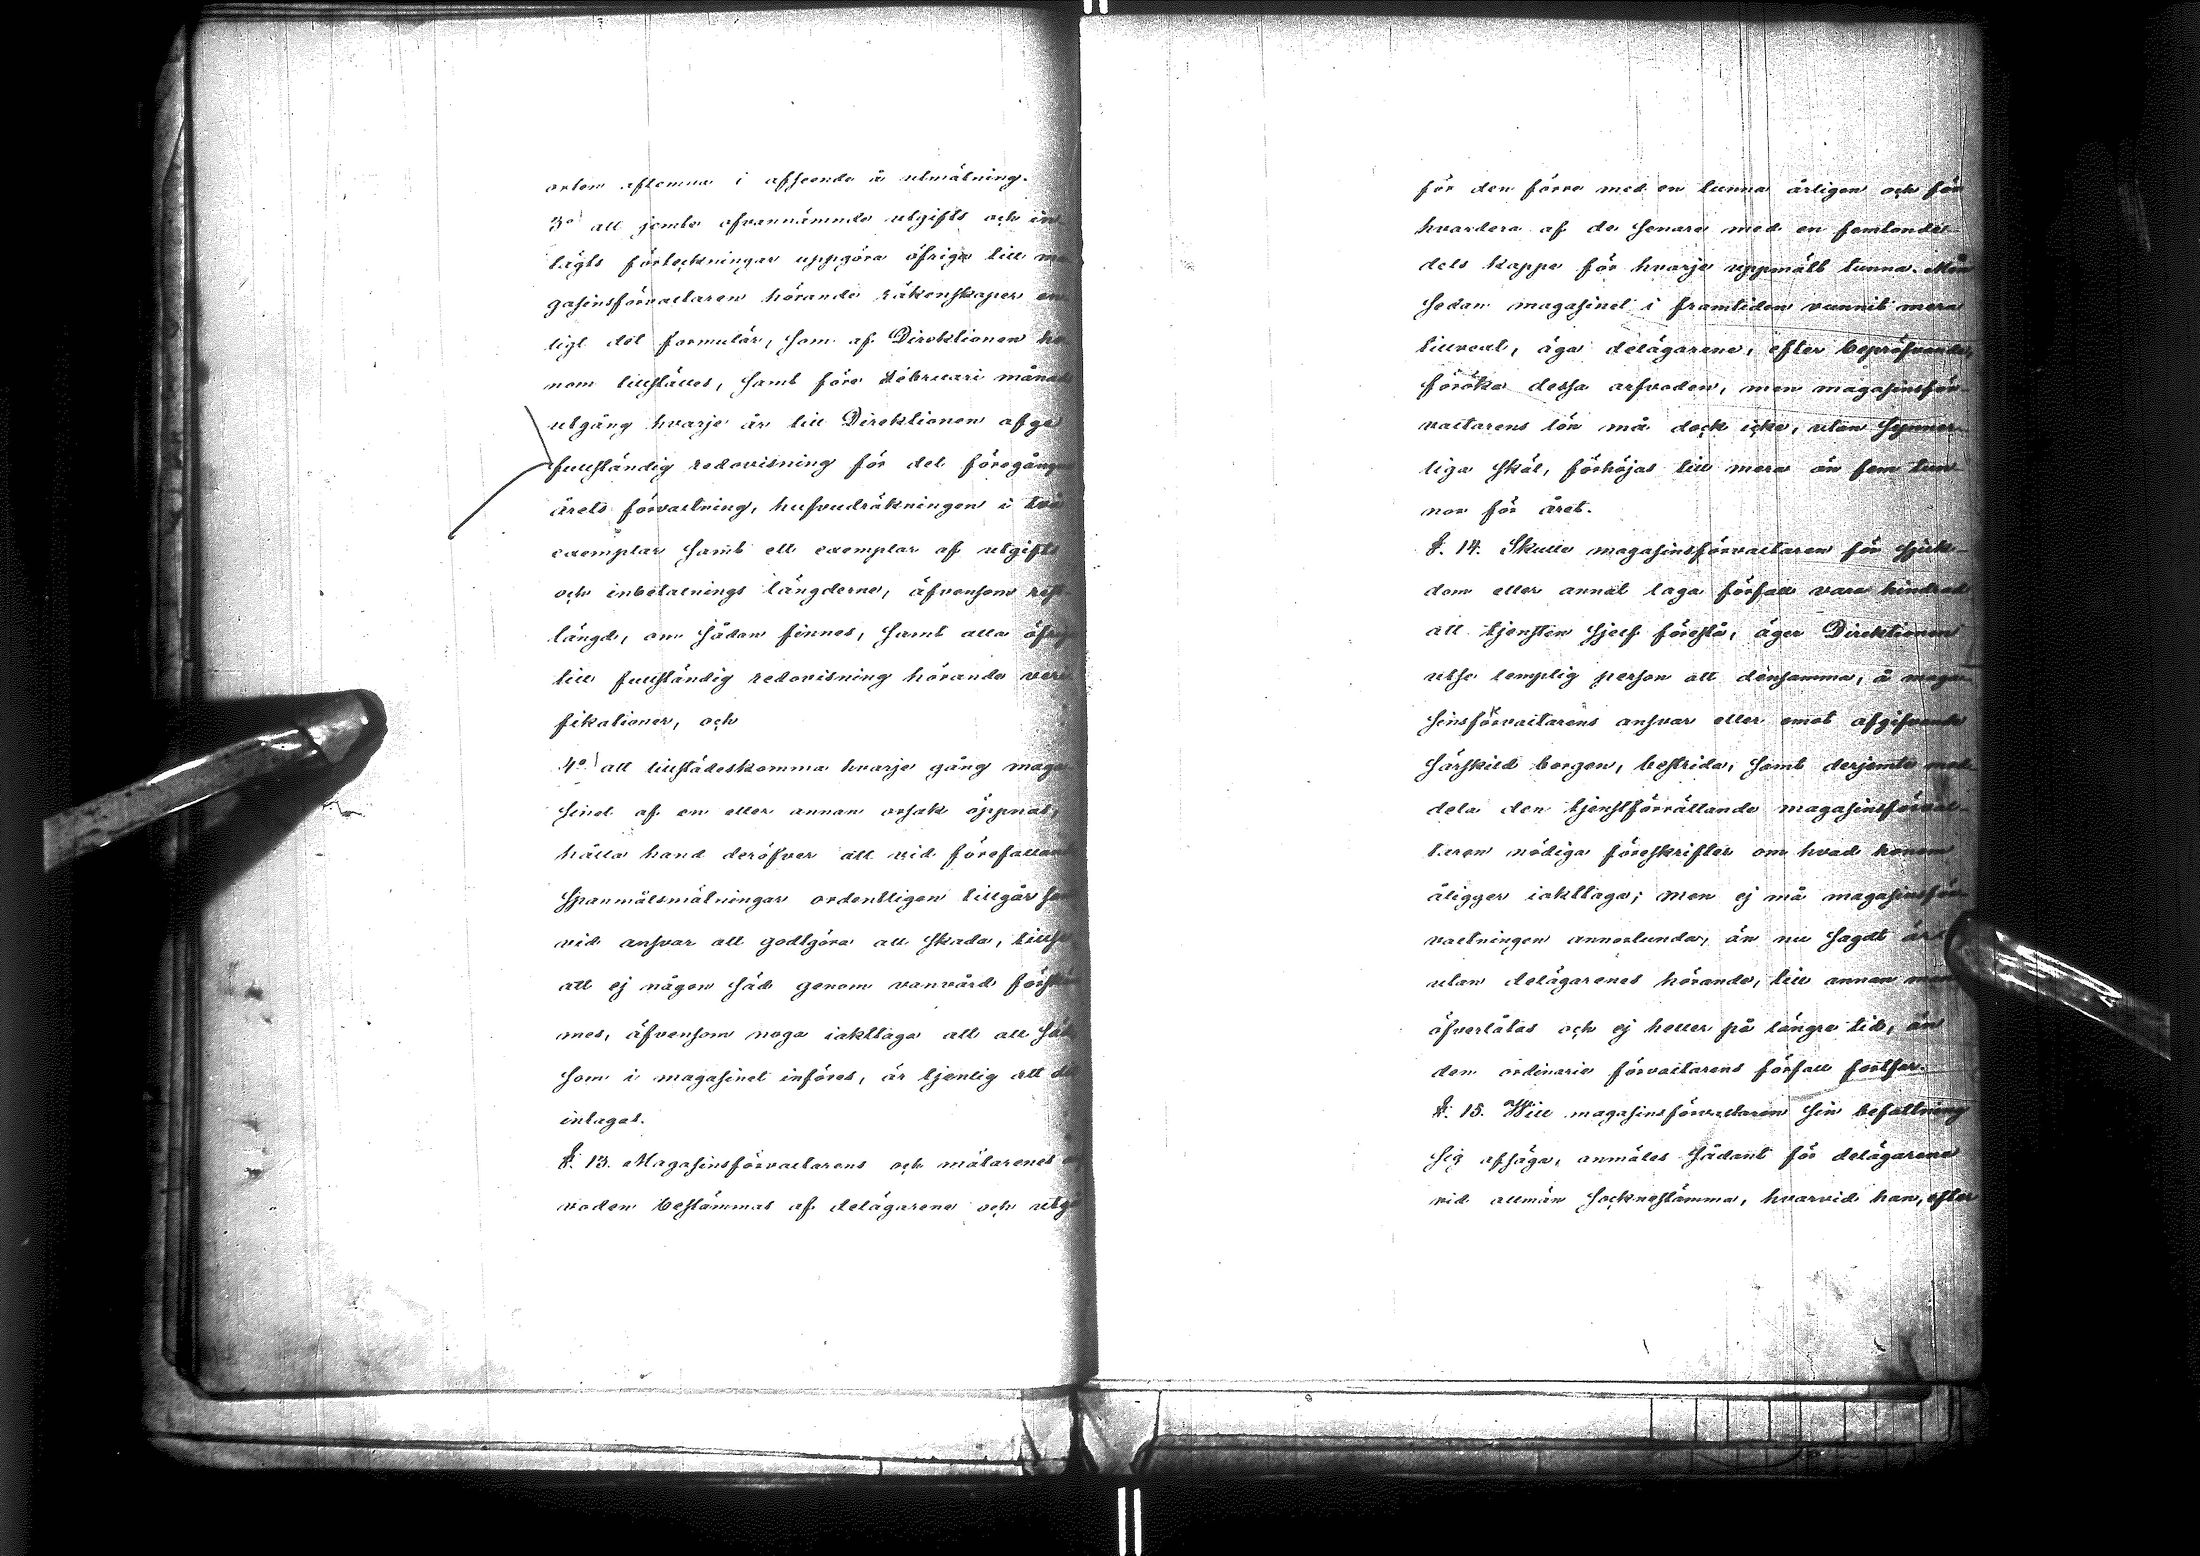 orten aftemna i afseende å utmätning.
3o) att jemte ofvannämnde utgifts och in
tägts förteckningar uppgöra öfriga till ma
gasinsförvaltaren hörande räkenskaper en
ligt det formulär, som af Direktionen ho
nom tillställes, samt före Februari månads
utgång hvarje år till Direktionen afge
fullständig redovisning för det föregångna
årets förvaltning, hufvudräkningen i två
exemplar samt ett exemplar af utgifts
och inbetalnings längderne, äfvensom rest
längd, om sådan finnes, samt alla öfrige
till fullständig redovisning hörande veri
fikationer, och
4o) att tillstädeskomma hvarje gång maga
sinet af en eller annan orsak öppnas,
hålla hand deröfver att vid förefallande
spanmålsmätningar ordentligen tillgår samt
vid ansvar att godtgöra all skada, tillse
att ej någon säd genom vanvård förskäm
mes, äfvensom noga iakttaga att all säd
som i magasinet införes, är tjenlig att der
intagas.
§. 13. Magasinsförvaltarens och mätarenes ar
voden bestämmas af delägarene och utgå
för den förre med en tunna årligen och för
hvardera af de senare med en femtondel
dels kappe för hvarje uppmätt tunna. Men
sedan magasinet i framtiden vunnit mera
tillvext, äga delägarene, efter bepröfvande,
föröka dessa arfvoden, men magasinsför-
valtarens lön må dock icke, utan synner-
liga skäl, förhöjas till mera än fem tun-
nor för året.
§. 14. Skulle magasinsförvaltaren för sjuk-
dom eller annat laga förfall vara hindrad
att tjensten sjelf förestå, äger Direktionen
utse lemplig person att densamma, å maga-
sinsförvaltarens ansvar eller emot afgifvande
särskild borgen, bestrida; samt derjemte med-
dela den tjenstförrättande magasinsförval-
taren nödiga föreskrifter om hvad honom
åligger iakttaga; men ej må magasinsför-
valtningen annorlunda, än nu sagdt är,
utan delägarenes hörande, till annan man
öfverlåtas och ej heller på längre tid, än
den ordinarie förvaltarens förfall fortfar.
§. 15. Will magasinsförvaltaren sin befattning
sig afsäga, anmäles sådant för delägarene
vid allmän socknestämma, hvarvid han, efter